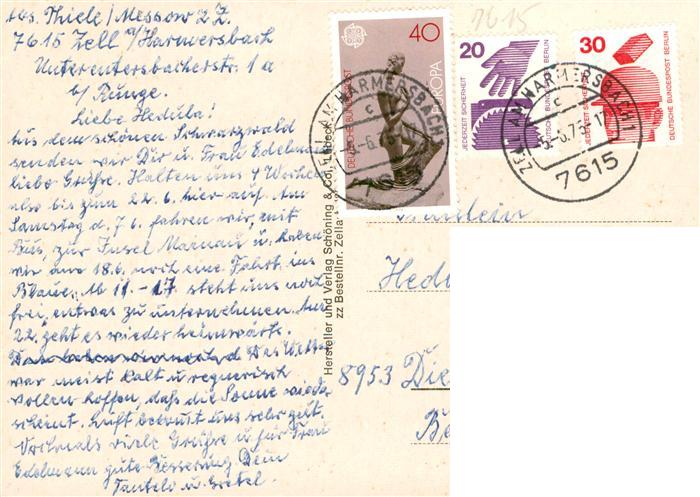 Abs. Thiele/Messow z. Z.
7615 Zell a/Harmersbach
Unterentersbacherstr. 1a
b/Runge.
Liebe Hedula!
Aus dem schönen Schwarzwald
senden wir Dir u. Frau Edelma
liebe Grüße. Halten uns 4 Wochen
also bis zum 22.6. hier auf. Am
Samstag d. 7.6. fahren wir, mit
Bus, zur Insel Mainau u. haben
wir am 18.6. noch eine Fahrt ins
Blaue. Ab 11.-17 steht uns noch
frei, entwas zu unternehmen. Am
22. geht es wieder heimwärts.
Das Wetter
war meist kalt u. regnerisch
wollen hoffen, daß die Sonne wieder
scheint. Luft bekommt uns sehr gut.
Nochmals viele Grüße u. für Frau
Edelmann gute Besserung Dein
Tantele u. Gretel.
Hersteller und Verlag Schöning & Co, Lübeck
zz Bestellnr. Zella
7615
40
EUROPA
DEUTSCHE BUNDESPOST
20
JEDERZEIT SICHERHEIT
DEUTSCHE BUNDESPOST BERLIN
30
JEDERZEIT SICHERHEIT
DEUTSCHE BUNDESPOST BERLIN
ZELL AM HARMERSBACH
c
ZELL AM HARMERSBACH 1
c
-5.-6.75-17
7615
Fräulein
Hedu
8953 Die